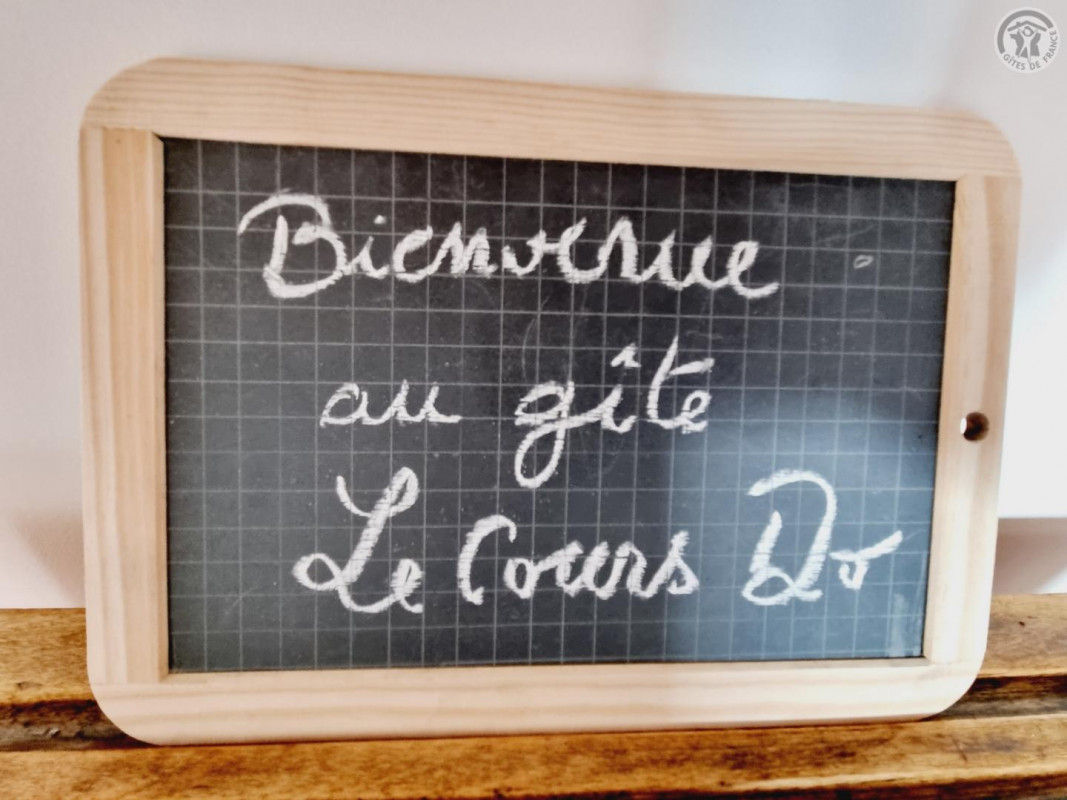 GÎTES DE FRANCE
Bienvenue
au gîte
Le Cours Do